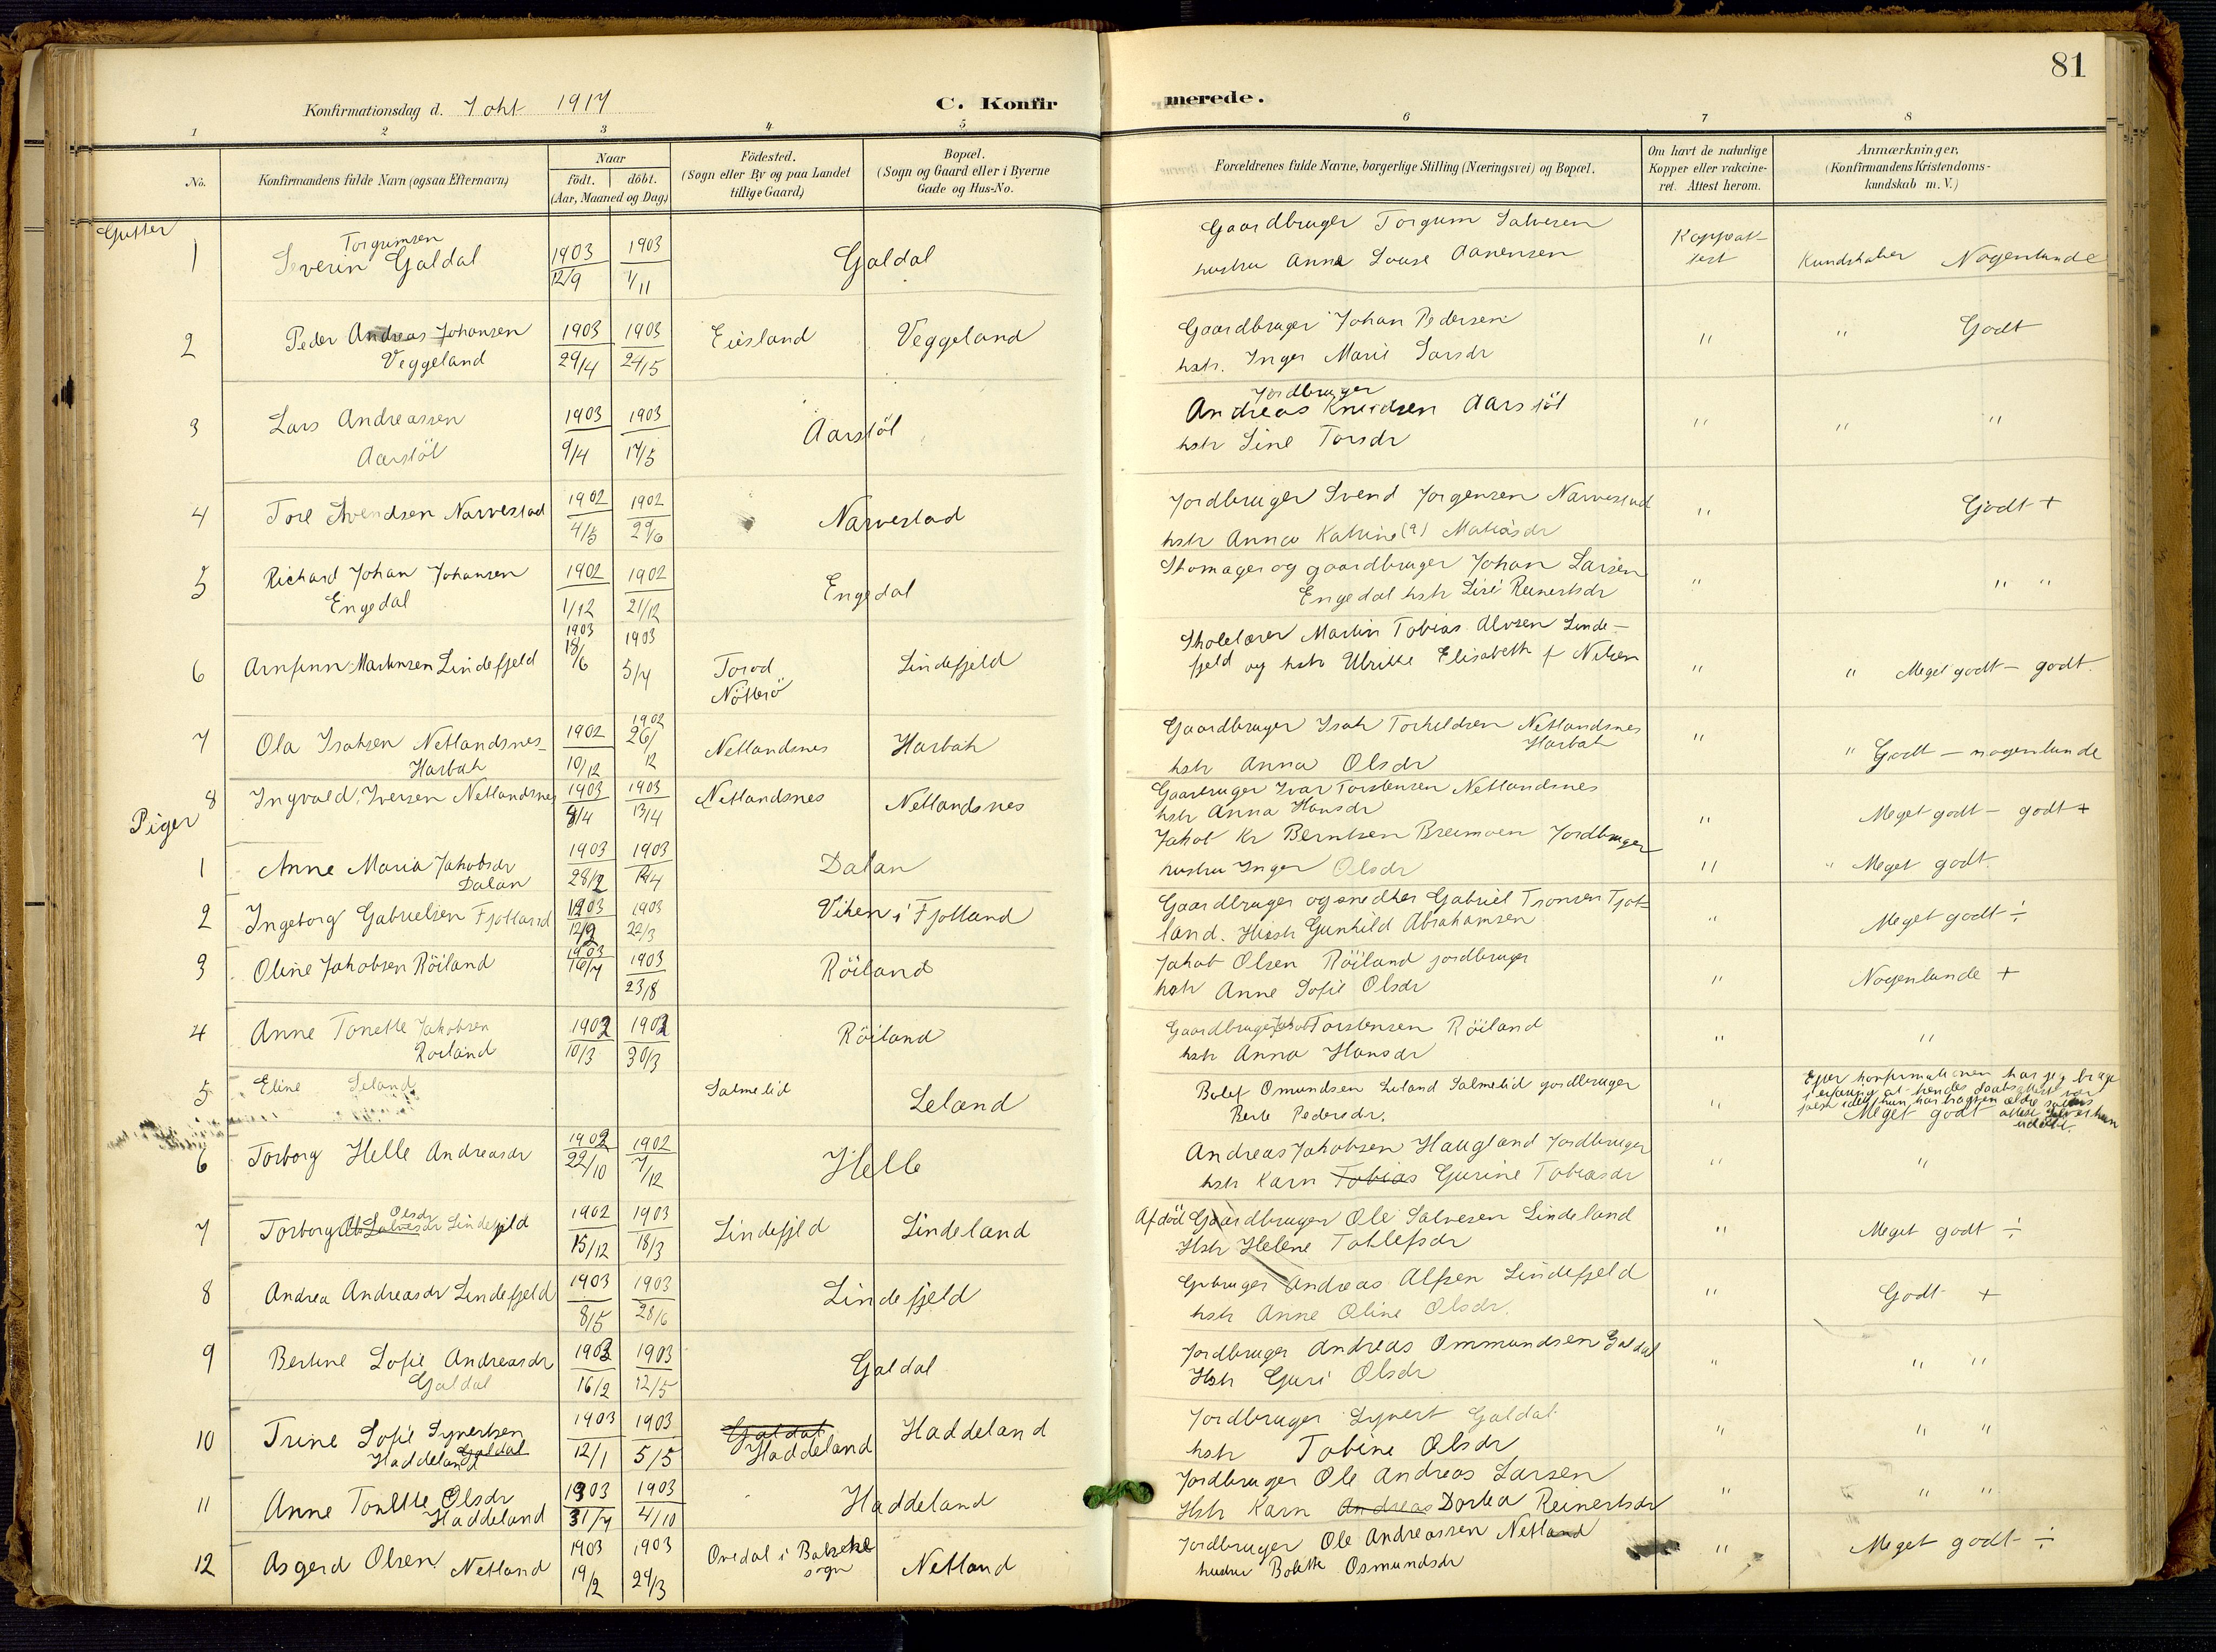 81
Konfirmationsdag d. 7 okt 1917
C. Konfirmerede.
1 2 3 4 5 6 7 8
No.
Konfirmandens fulde Navn (ogsaa Efternavn)
Naar
født. døbt.
(Aar, Maaned og Dag)
Födested.
(Sogn eller By og paa Landet
tillige Gaard)
Bopæl.
(Sogn og Gaard eller i Byerne
Gade og Hus-No.
Forældrenes fulde Navne, borgerlige Stilling (Næringsvei) og Bopæl.
Om havt de naturlige
Kopper eller vakcine-
ret. Attest herom.
Anmærkninger.
(Konfirmandens Kristendoms-
kundskab m. V.)
Gutter
1 Severin Torgrimsen Galdal 1903 12/9 1903 1/11 Galdal
Gaardbruger Torgrim Salvesen
hustru Anna Louise Aanensen
Koppeat-
test
Kundskaber Nogenlunde
2 Peder Andreas Johansen
Veggeland 1903 29/4 1903 24/5 Eiesland Veggeland
Gaardbruger Johan Pedersen
hstr. Inger Marie Larsdr
" " Godt
3 Lars Andreassen
Aarstöl 1903 9/4 1903 17/5 Aarstöl
Jordbruger
Andreas Knudsen Aarstöl
hstr Sine Torsdr
" " "
4 Tore Svendsen Narvestad 1902 4/5 1902 29/6 Narvestad
Jordbruger Svend Jorgensen Narvestad
hstr Anna Katrine (?) Matiasdr
" Godt +
5 Richard Johan Johansen
Engedal 1902 1/12 1902 21/12 Engedal
Skomager og gaardbruger Johan Larsen
Engedal hstr Lise Reinertsdr
" " "
6 Arnfinn Martinsen Lindefjeld 1903 18/6 1903 5/7 Torød
Nötterö Lindefjeld
Skolelærer Martin Tobias Alvsen Linde-
fjeld og hstr Ulrikke Elisabeth f Nilsen
" " Meget godt - godt.
7 Ola Isaksen Netlandsnes-
Harbak 1902 10/12 1902 26/12 Netlandsnes Harbak
Gaardbruger Isak Torkeldsen Netlandsnes
Harbak
hstr Anna Olsdr
" " Godt - nogenlunde
8 Ingvald Iversen Netlandsnes 1903 8/4 1903 13/4 Netlandsnes Netlandsnes
Gaardbruger Ivar Torstensen Netlandsnes
hstr Anna Hansdr
" Meget godt - godt +
Piger
1 Anne Maria Jakobsdr
Dalan 1903 28/2 1903 Dalan
Jakob Kr Berntsen Breimoen Jordbruger
hustru Inger Olsdr
" " Meget godt
2 Ingeborg Gabrielsen Fjotland 1903 12/2 1903 22/3 Viken i Fjotland
Gaardbruger og snedker Gabriel Tronsen Fjot-
land. Hustr Gunhild Abrahamsen
" Meget godt ÷
3 Oline Jakobsen Röiland 1903 16/7 1903 23/8 Röiland
Jakob Olsen Röiland jordbruger
hstr Anne Sofie Olsdr
" Nogenlunde +
4 Anne Tonette Jakobsen
Roiland 1902 10/3 1902 30/3 Röiland
Gaardbruger Jakob Torstensen Röiland
hstr Anna Hansdr
" "
5 Eline Leland Salmelid Leland
Bolef Omundsen Leland Salmelid jordbruger
Berte Pedersdr.
"
Efter konfirmationen har jeg bragt
i erfaring at hendes daabsattest var
falsk idet hun har
Meget godt
6 Torborg Helle Andreasdr 1902 22/10 1902 7/12 Helle
Andreas Jakobsen Haugland Jordbruger
hstr Karn Tobias Gurine Tobiasdr
" "
7 Torborg Olsdr Lindefjeld 1902 15/12 1903 18/3 Lindefjeld Lindeland
Afdöd Gaardbruger Ole Salvesen Lindeland
Hstr Helene Tallefsdr
" Meget godt ÷
8 Andrea Andreasdr Lindefjeld 1903 8/5 1903 28/6 Lindefjeld
Grbruger Andreas Alfsen Lindefjeld
hstr Anne Oline Olsdr.
" Godt +
9 Bertine Sofie Andreasdr
Galdal 1903 16/2 1903 12/5 Galdal
Jordbruger Andreas Ommundsen Galdal
Hstr Guri Olsdr
" " "
10 Trine Sofie Syvertsen
Haddeland Galdal 1903 12/1 1903 5/5 Galdal
Haddeland Haddeland
Jordbruger Syvert Galdal
hstr Tobine Olsdr
" " "
11 Anne Tonette Olsdr
Haddeland 1903 31/7 1903 4/10 Haddeland
Jordbruger Ole Andreas Larsen
Hstr Karn Andreas Dortea Reinertsdr
" " "
12 Asgerd Olsen Netland 1903 19/2 1903 29/3 Øvedal i Bakke
sogn Netland
Jordbruger Ole Andreassen Netland
hustru Bolette Osmundsdr
" Meget godt ÷